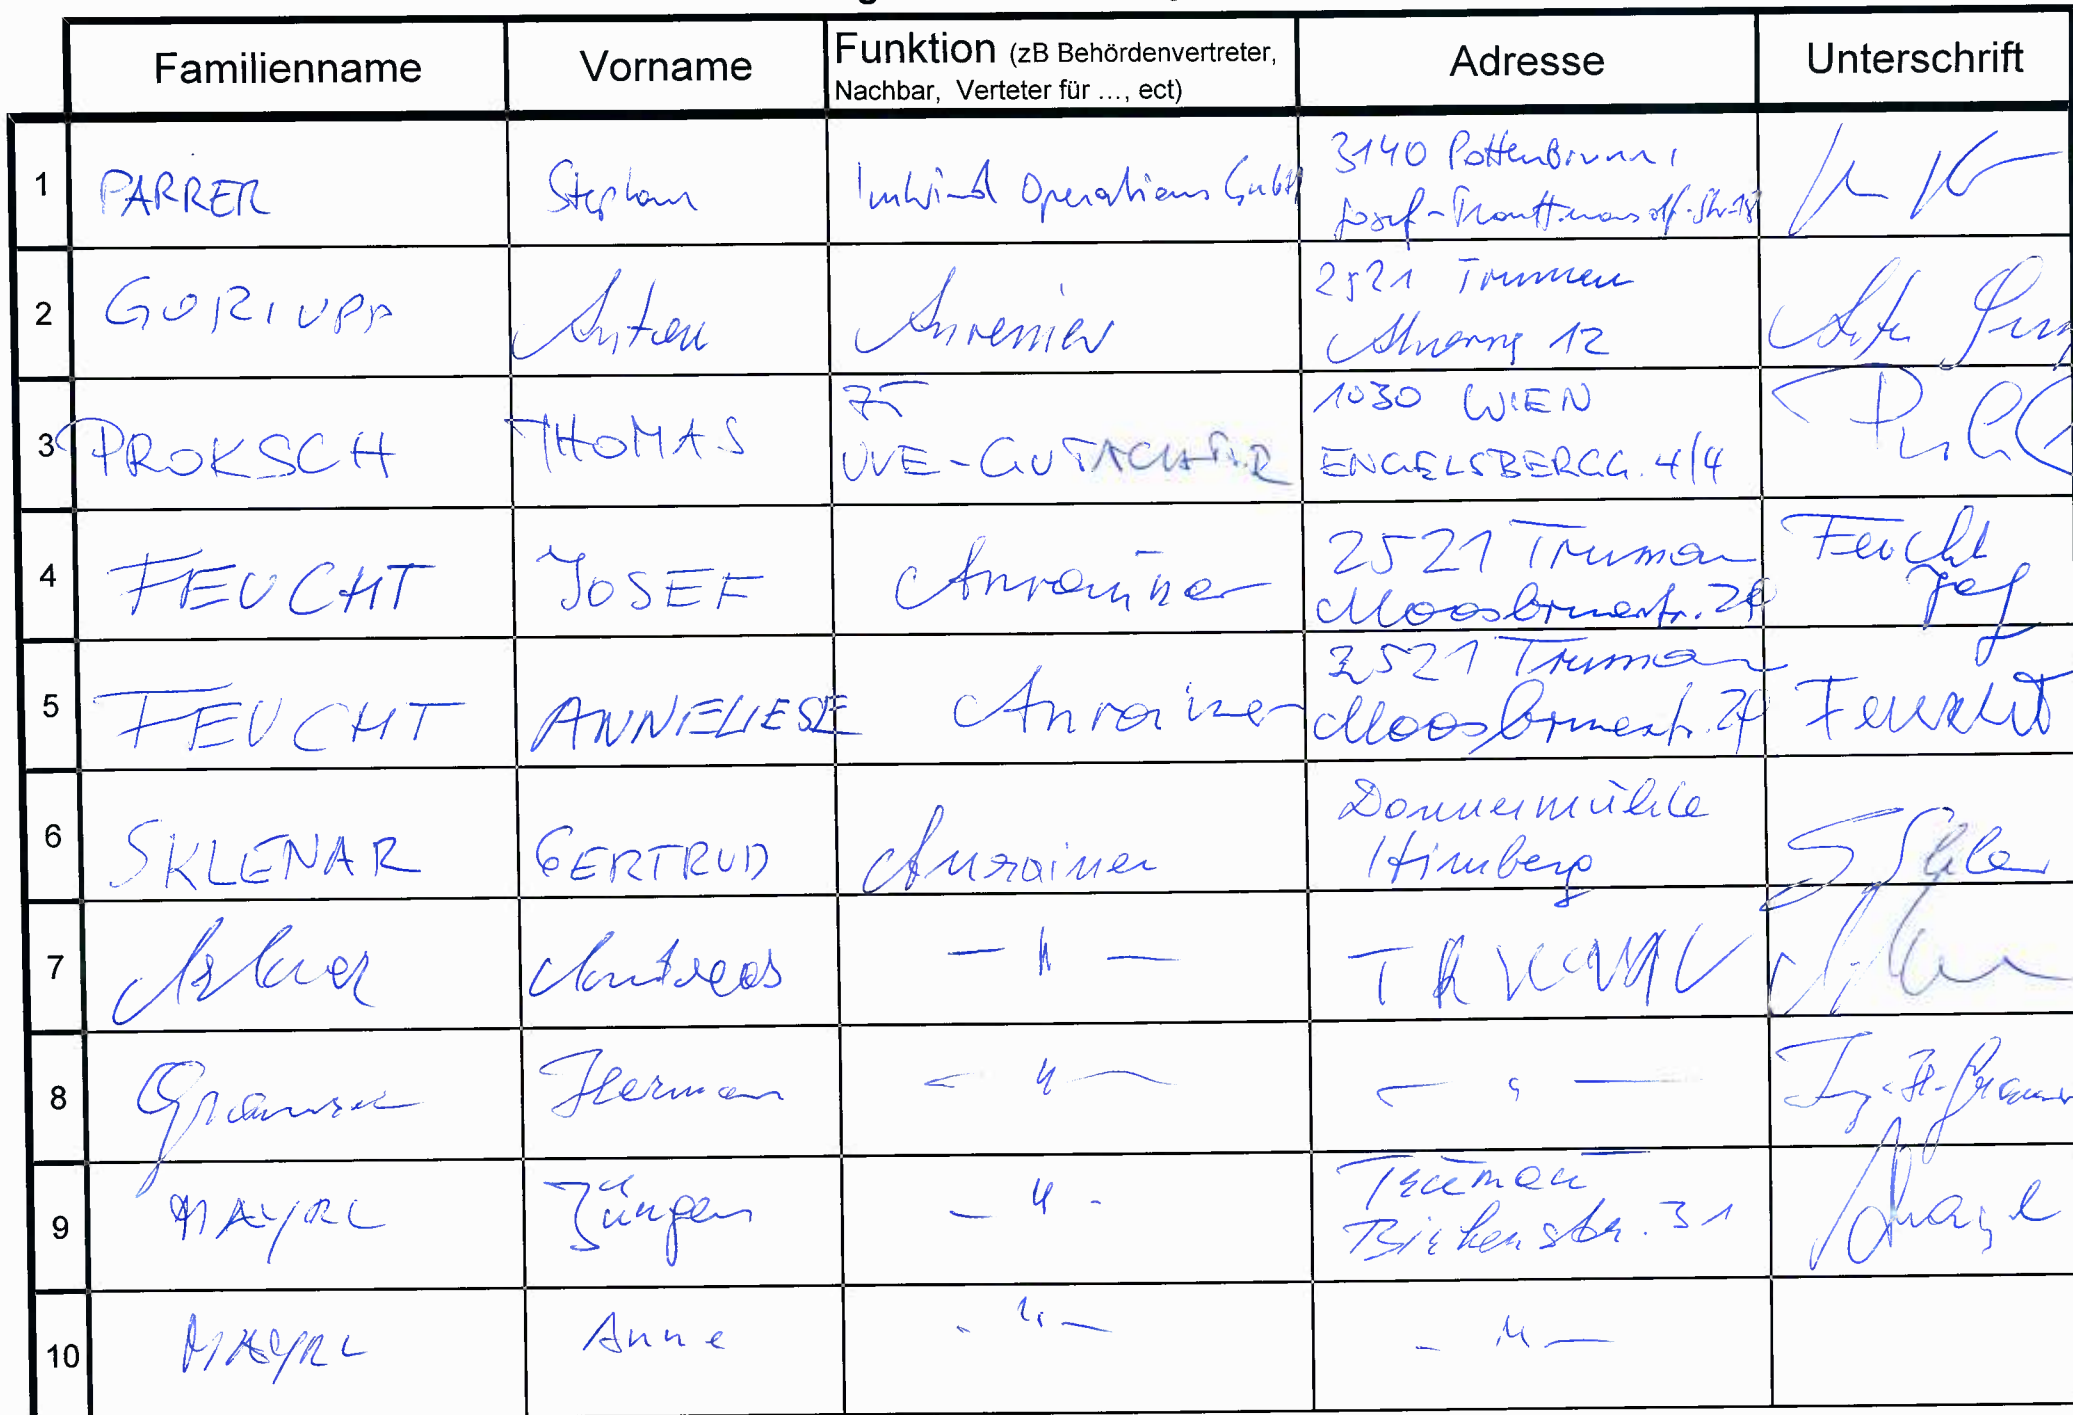 Familienname Vorname Funktion (zB Behördenvertreter, Nachbar, Verteter für ..., ect) Adresse Unterschrift
1 PARRER Stephan ImWind Operations GmbH 3140 Pottenbrunn,
Josef-Trauttmansdorff-Str. 18
2 GORIUPP Anton Anrainer 2521 Trumau
12
3 PROKSCH THOMAS
UVE-GUTACHTER 1030 WIEN
ENGELSBERGG. 4/4
4 FEUCHT JOSEF Anrainer 2521 Trumau
Moosbrunnerstr. Feucht
5 FEUCHT ANNELIESE Anrainer 2521 Trumau
Moosbrunnerstr. Feucht
6 SKLENAR GERTRUD Anrainer Donnermühle
Himberg
7 Andreas — " — TRUMAU
8 Herman — " — — " —
9 MAYRL Jürgen — " - Trumau
Birkenstr. 31
10 MAYRL Anne - " — - " —